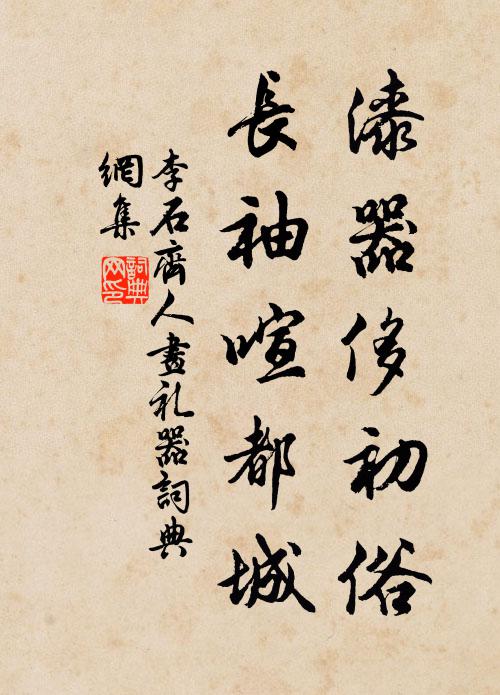 漆器侈初俗
長袖喧都城
李石齊人畫礼器詞典
網集
詞典
网印